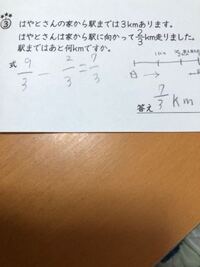 ③ はやとさんの家から駅までは3kmあります。
はやとさんは家から駅に向かって2/3km走りました。
駅まではあと何kmですか。
式
9/3 − 2/3 = 7/3
1km
答え 7/3 Km